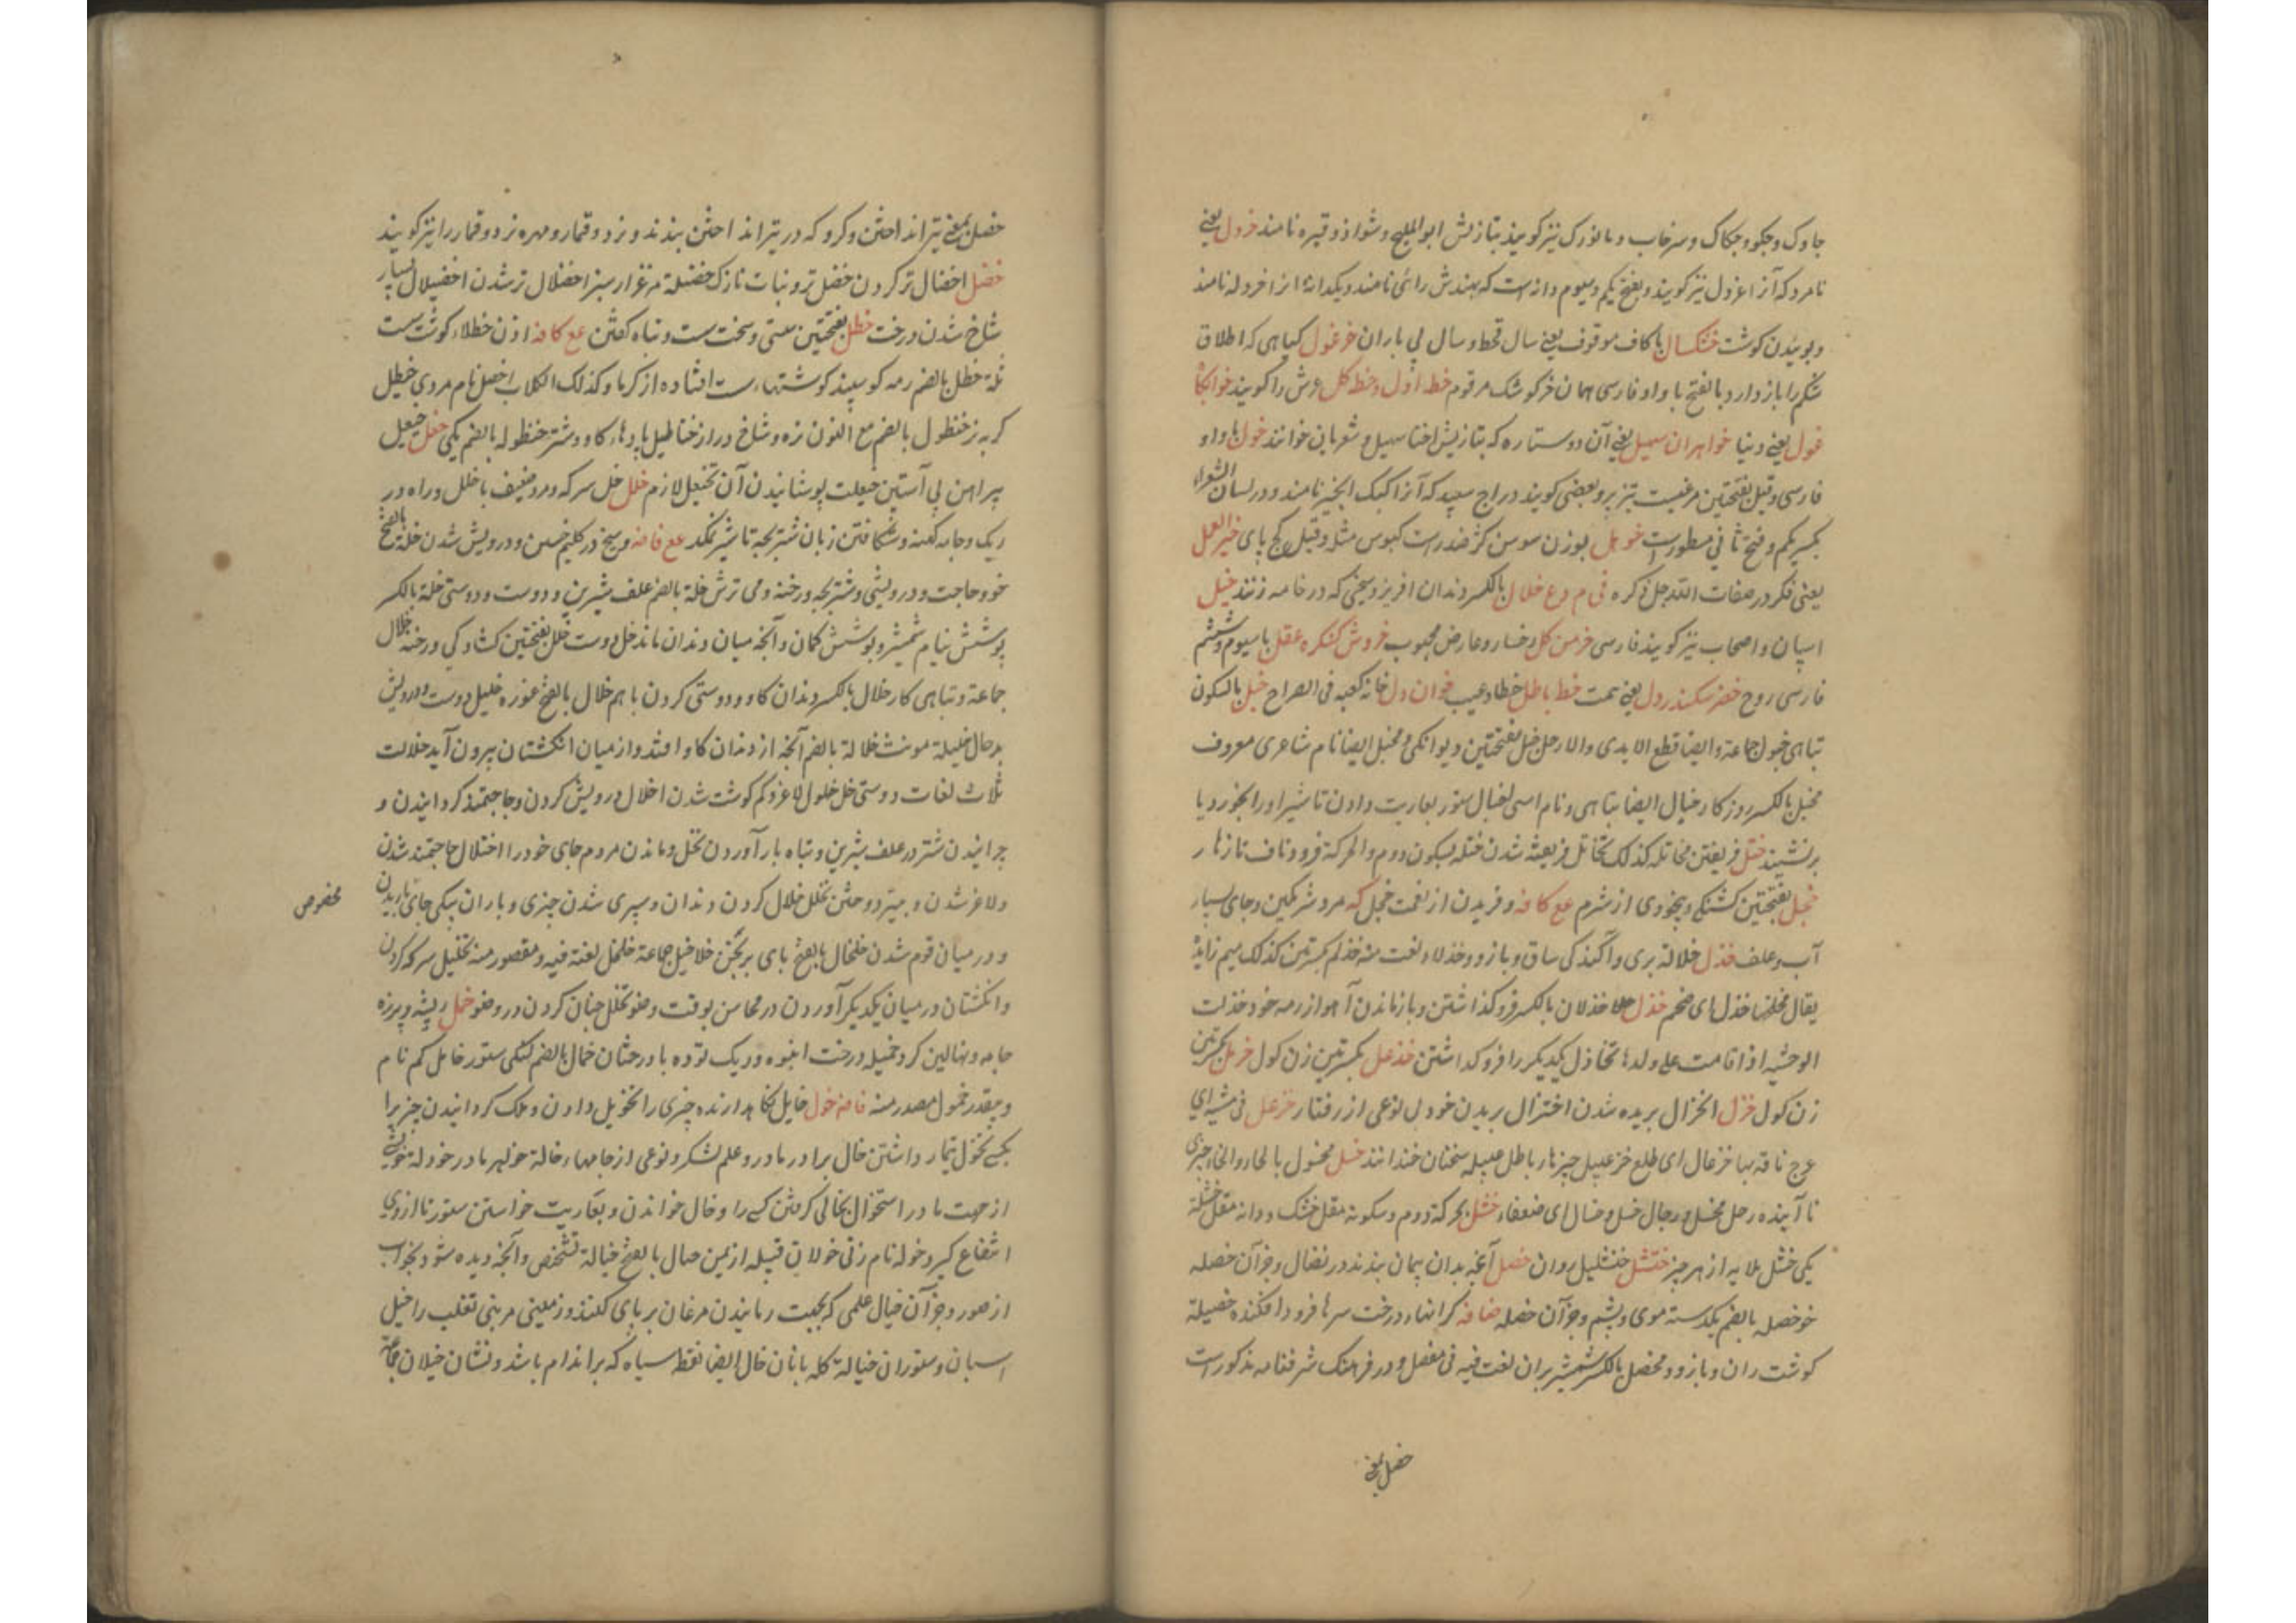 جاوک و جکو و جکاک و سرخاب و مانورک نیز کویند بتازیش ابو الملیح و شواذ و قبره نامند خرول یعنی
نامرد که آنرا غزول نیز کویند و بفتح یکم و سیوم دانه است که بهندش رائی نامند و یکدانهٔ انرا خردله نامند
و بوییدن کوشت خشکسال با کاف موقوف یعنی سال قحط و سال بی باران خرغول کیاهی که اطلاق
شکم را باز دارد بالفتح با واو فارسی همان خرکوشک مرقوم خط اول و خط کل عرش را کویند
غول یعنی دنیا خواهران سهیل یعنی آن دو ستاره که بتازیش اختا سهیل و شعریان خوانند خول با واو
فارسی و قیل بفتحتین مرغیست تیز پر و بعضی کویند دراج سپید که آنرا کبک انجیر نامند و در لسان الشعراء
بکسر یکم و فتح ثانی مسطور است خوهل بوزن سوسن کژ ضد راست کبوس مثله و قیل کج پای خیر العمل
یعنی فکر در صفات الله جل ذکره فی م وع خلال بالکسر دندان افریز و سیخی که در خامه زنند خیل
اسپان و اصحاب نیز کویند فارسی خرمن کل رخسار و عارض محبوب خروش کنکره عقل با سیوم و ششم
فارسی روح خضر سکندر دل یعنی همت خط باطل خطا و عیب خوان دل خانه کعبه فی الصراح خبل بالسکون
تباهی خبول جماعة و ایضا قطع الایدی و الارجل خبل بفتحتین دیوانکی و مخبل ایضا نام شاعری معروف
مخبل بالکسر روزکار خبال ایضا تباهی و نام اسپی اخبال ستور بعاریت دادن تا شیر او را بخورد یا
برنشیند ختل فریفتن مخاتله کذلک تخاتل فریفته شدن ختله بسکون دوم و الحرکة فرود ناف تا زهار
خجل بفتحتین کشتکی و بیخودی از شرم مع کافه و فریدن از نعمت خجل که مرد شرمکین و جای بسیار
آب و علف خدل خدالة پری و آکندکی ساق و بازو و خدلاء نعت منه خدلم بکسرتین کذلک میم زایدة
یقال مخلخلها خدل ای ضخم خذل خذلان بالکسر فروکذاشتن و باز ماندن آهو از رمه خود خذلت
الوحشیه اذا قامت علی ولدها تخاذل یکدیکر را فروکذاشتن خذعل بکسرتین زن کول خرمل بکسرتین
زن کول خزل انخزال بریده شدن اختزال بریدن خود لی نوعی از رفتار خزعل فی مشیه ای
عرج ناقة بها خزعال ای ظلع خزعبیل چیزهاء باطل خزعبیله سخنان خنداننده خسل مخسول بالحاء و الخاء چیزی
ناآینده رجل مخسل و رجال خسل و خسال ای ضعفاء خشل بحرکة دوم و سکونه مقل خشک و دانه مقل خشلة
یکی خشل بلایه از هر چیز خنشل خنشلیل روان خصل آنچه بدان پیمان بندند در نضال و جز آن خصله
خو خصله بالضم یکدسته موی و پشم و جز آن خصله ضافه کرانهاء درخت سرها فرود افکنده خصیلة
کوشت ران و بازو و مخصل بالکسر شمشیر بران لغت فیه فی مفصل و در فرهنک شرفنامه مذکور است
خصل بمعنی
خصل بمعنی تیر انداختن و کرو که در تیر انداختن بندند و نرد و قمار و مهره نرد و قمار را نیز کویند
خضل اخضال تر کردن خضل تر و نبات نازک خضیلة مرغزار سبز اخضلال تر شدن اخضیلال بسیار
شاخ شدن درخت خطل بفتحتین سستی و سخت سست و تباه کفتن مع کافه اذن خطلاء کوشت سست
ثلة خطل بالضم رمه کوسپند کوشتهاء سست افتاده از کرما و کذلک الکلاب اخطل نام مردی خیطل
کربه خنظول بالضم مع النون نره و شاخ دراز خناطیل پارهاء کاو و شتر خنطوله بالضم یکی خعل خیعل
پیراهن بی آستین خیعلت پوشانیدن آن تخیعل لازم خلل خل سرکه و مرد ضعیف با خلل و راه در
ریک و جامه کهنه و شکافتن زبان شتر بچه تا شیر نمکد مع فافه و سیخ در کلیم خستن و درویش شدن خلة بالفتح
خو و حاجت و درویشی و شتر بچه و رخنه و می ترش خلة بالضم علف شیرین و دوست و دوستی خلة بالکسر
پوشش نیام شمشیر و پوشش کمان و آنچه میان دندان ماند خل دوست خلل بفتحتین کشادکی و رخنه خلال
جماعة و تباهی کار خلال بالکسر دندان کاو و دوستی کردن با هم خلال بالفتح غوزه خلیل دوست و درویش
بدحال خلیلة مونث خلالة بالضم آنچه از دندان کاو افتد و از میان انکشتان بیرون آید خلالت
ثلاث لغات دوستی خل خلول لاغر و کم کوشت شدن اخلال درویش کردن و حاجتمند کردانیدن و
چرانیدن شتر در علف شیرین و تباه بار آوردن نخل و ماندن مردم جای خود را اختلال حاجتمند شدن
و لاغر شدن و بنیزه دوختن تخلل خلال کردن دندان و سپری شدن چیزی و باران بیکی جای باریدن
مخصوص
و در میان قوم شدن خلخال بالفتح پای برنجن خلاخیل جماعة خلخل لغة فیه و مقصور منه تخلیل سرکه کردن
و انکشتان در میان یکدیکر آوردن در محاسن بوقت وضو تخلل چنان کردن در وضو خمل ریشه و پرزه
جامه و نهالین کرد خمیله درخت انبوه و ریک توده با درختان خمال بالضم لنکی ستور خامل کم نام
و بیقدر خمول مصدر منه فافه خول خایل نکاهدارنده چیزی را تخویل دادن و ملک کردانیدن چیز را
بکسی تخول تیمار داشتن خال برادر مادر و علم لشکر و نوعی از جامهاء خالة خواهر مادر خؤولة خویشی
از جهت مادر استخوال بخالی کرفتن کسی را و خال خواندن و بعاریت خواستن ستور تا از وی
انتفاع کیرد خوله نام زنی خولان قبیله از یمن خیال بالفتح خیالة تشخص و آنچه دیده شود بخواب
از صور و جز آن خیال علمی که بجهت رمانیدن مرغان بر پای کنند و زمینی مر بنی تغلب را خیل
اسپان و ستوران خیالة کله بانان خال ایضا نقطه سیاه که بر اندام باشد و نشان خیلان جماعة